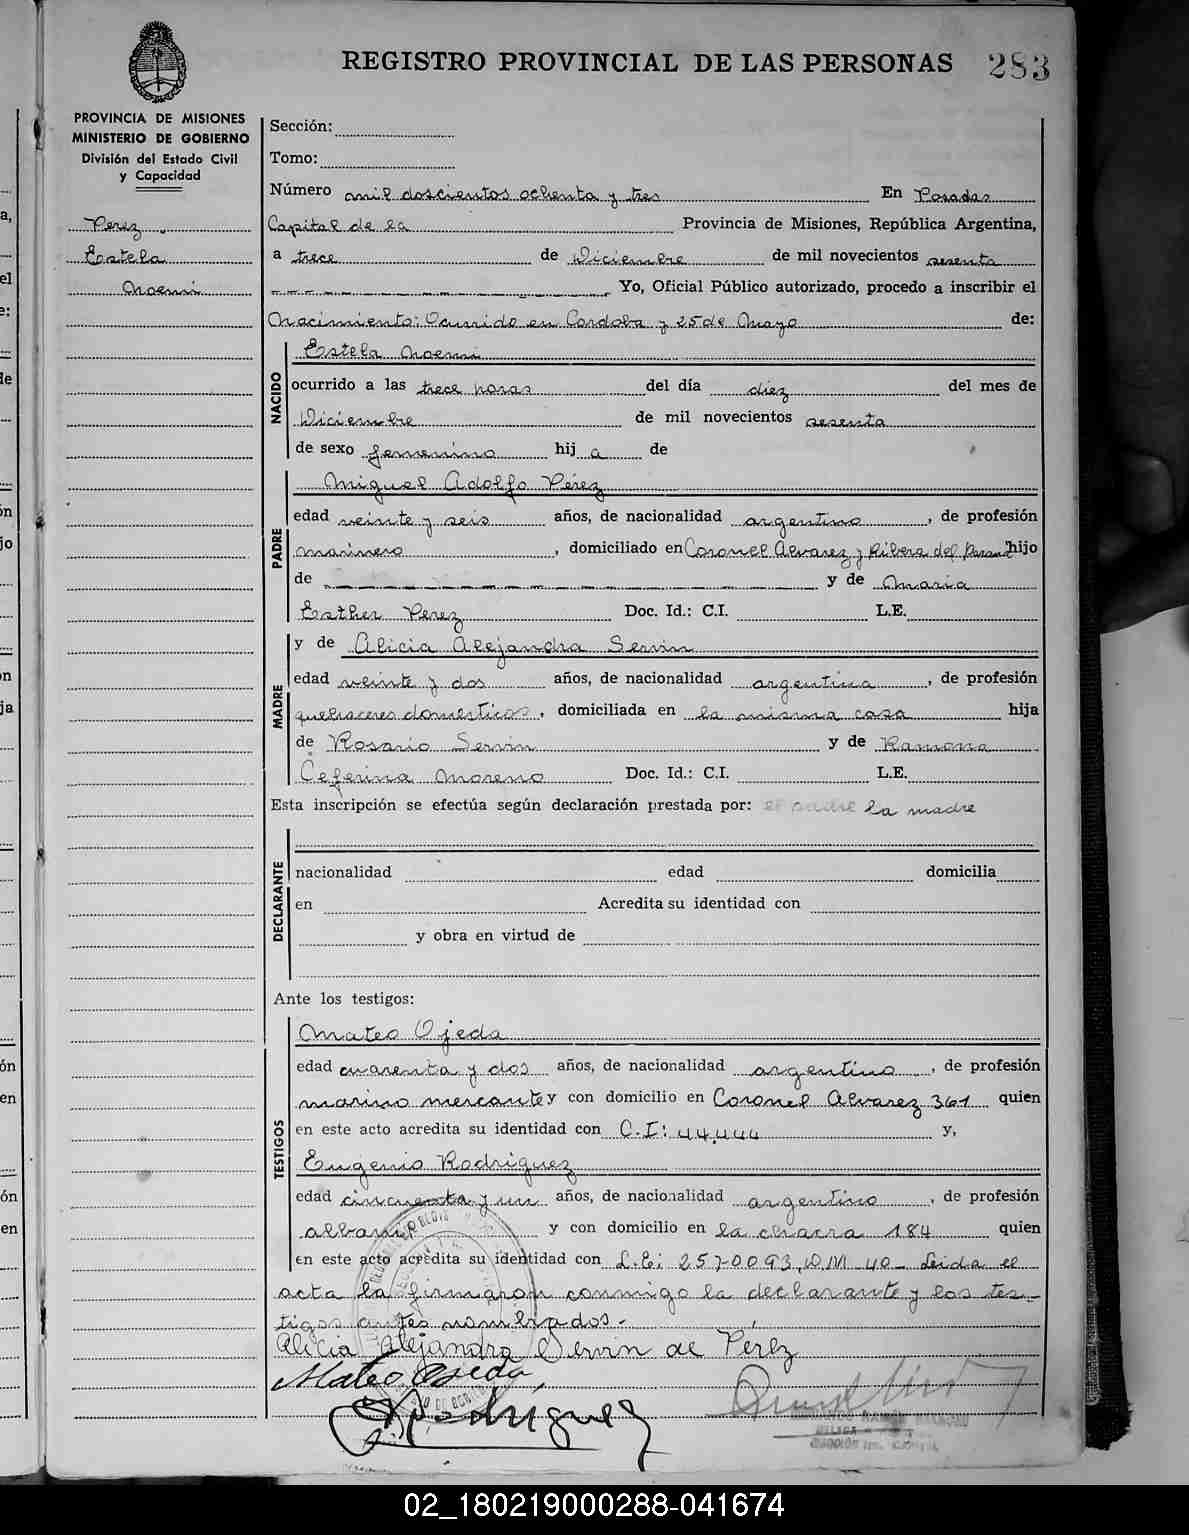 REGISTRO PROVINCIAL DE LAS PERSONAS 283
PROVINCIA DE MISIONES
MINISTERIO DE GOBIERNO
División del Estado Civil
y Capacidad
Perez
Estela
Noemi
Sección:
Tomo:
Número mil doscientos ochenta y tres En Posadas
Capital de la Provincia de Misiones, República Argentina,
a trece de Diciembre de mil novecientos sesenta
Yo, Oficial Público autorizado, procedo a inscribir el
Nacimiento: Ocurrido en Cordoba y 25 de Mayo de:
NACIDO
Estela Noemi
ocurrido a las trece horas del día diez del mes de
Diciembre de mil novecientos sesenta
de sexo femenino hij a de
PADRE
Miguel Adolfo Pérez
edad veinte y seis años, de nacionalidad argentino, de profesión
marinero, domiciliado en Coronel Alvarez y Ribera del Parana hijo
de y de Maria
Esther Perez Doc. Id.: C.I. L.E.
MADRE
y de Alicia Alejandra Servin
edad veinte y dos años, de nacionalidad argentina, de profesión
quehaceres domesticos, domiciliada en la misma casa hija
de Rosario Servin y de Ramona
Ceferina Moreno Doc. Id.: C.I. L.E.
Esta inscripción se efectúa según declaración prestada por: el padre la madre
DECLARANTE
nacionalidad edad domicilia
en Acredita su identidad con
y obra en virtud de
Ante los testigos:
TESTIGOS
Mateo Ojeda
edad cuarenta y dos años, de nacionalidad argentino, de profesión
marino mercante y con domicilio en Coronel Alvarez 361 quien
en este acto acredita su identidad con C.I: 44.444 y,
Eugenio Rodriguez
edad cincuenta y un años, de nacionalidad argentino, de profesión
albañil y con domicilio en la chacra 184 quien
en este acto acredita su identidad con L.E: 2570093, D.M 40 - Leida el
acta la firmaron conmigo la declarante y los tes-
tigos antes nombrados.-
Alicia Alejandra Servin de Pérez
Mateo Ojeda,
Rodriguez
02_180219000288-041674